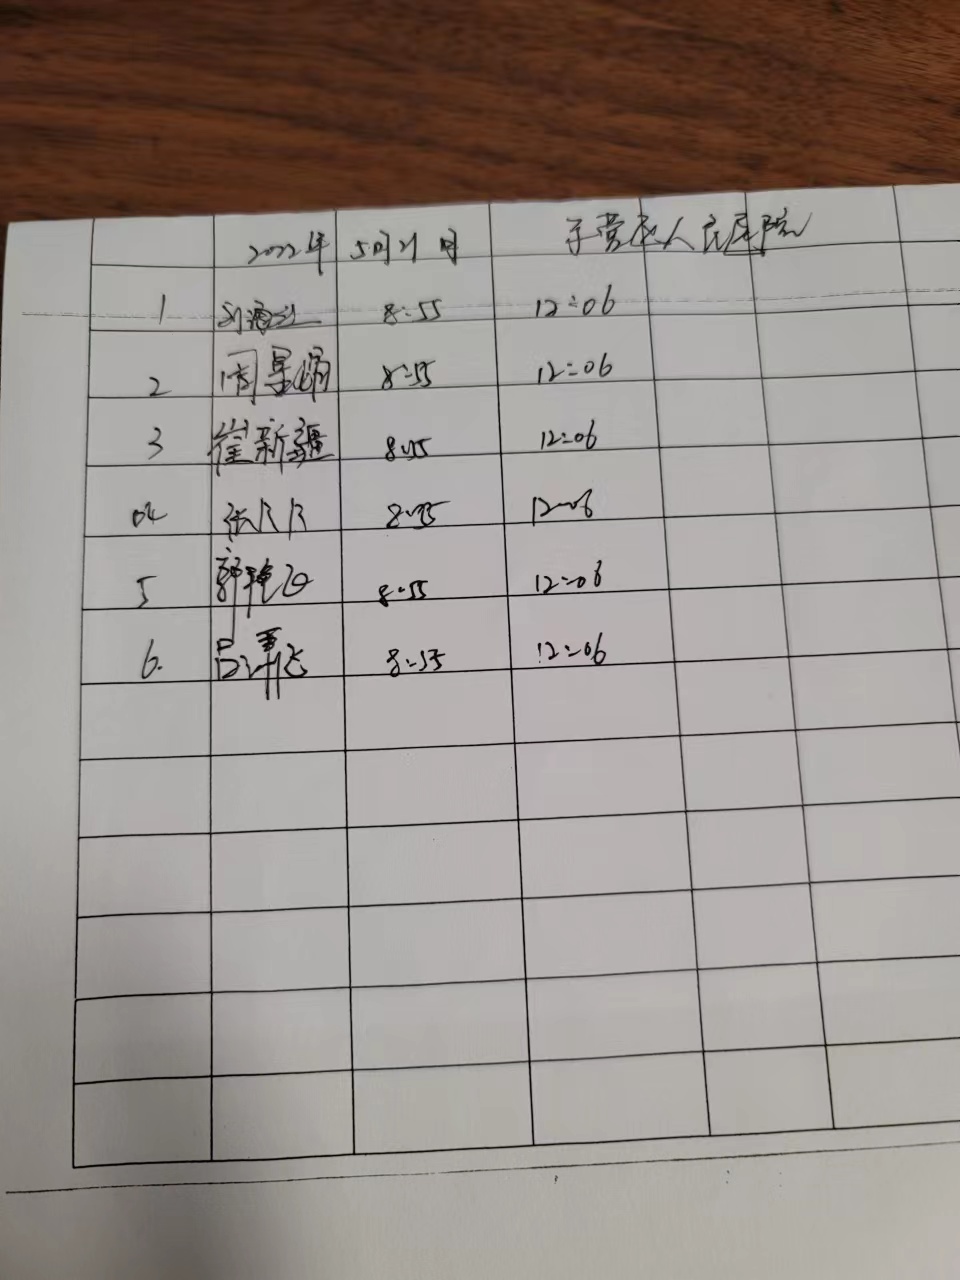 2022年 5月21日 东营区人民医院
1 刘海 8:55 12:06
2 周景 8:55 12:06
3 崔新疆 8:55 12:06
04 张 8:55 12:06
5 郭艳 8:55 12:06
6. 吕 8:55 12:06